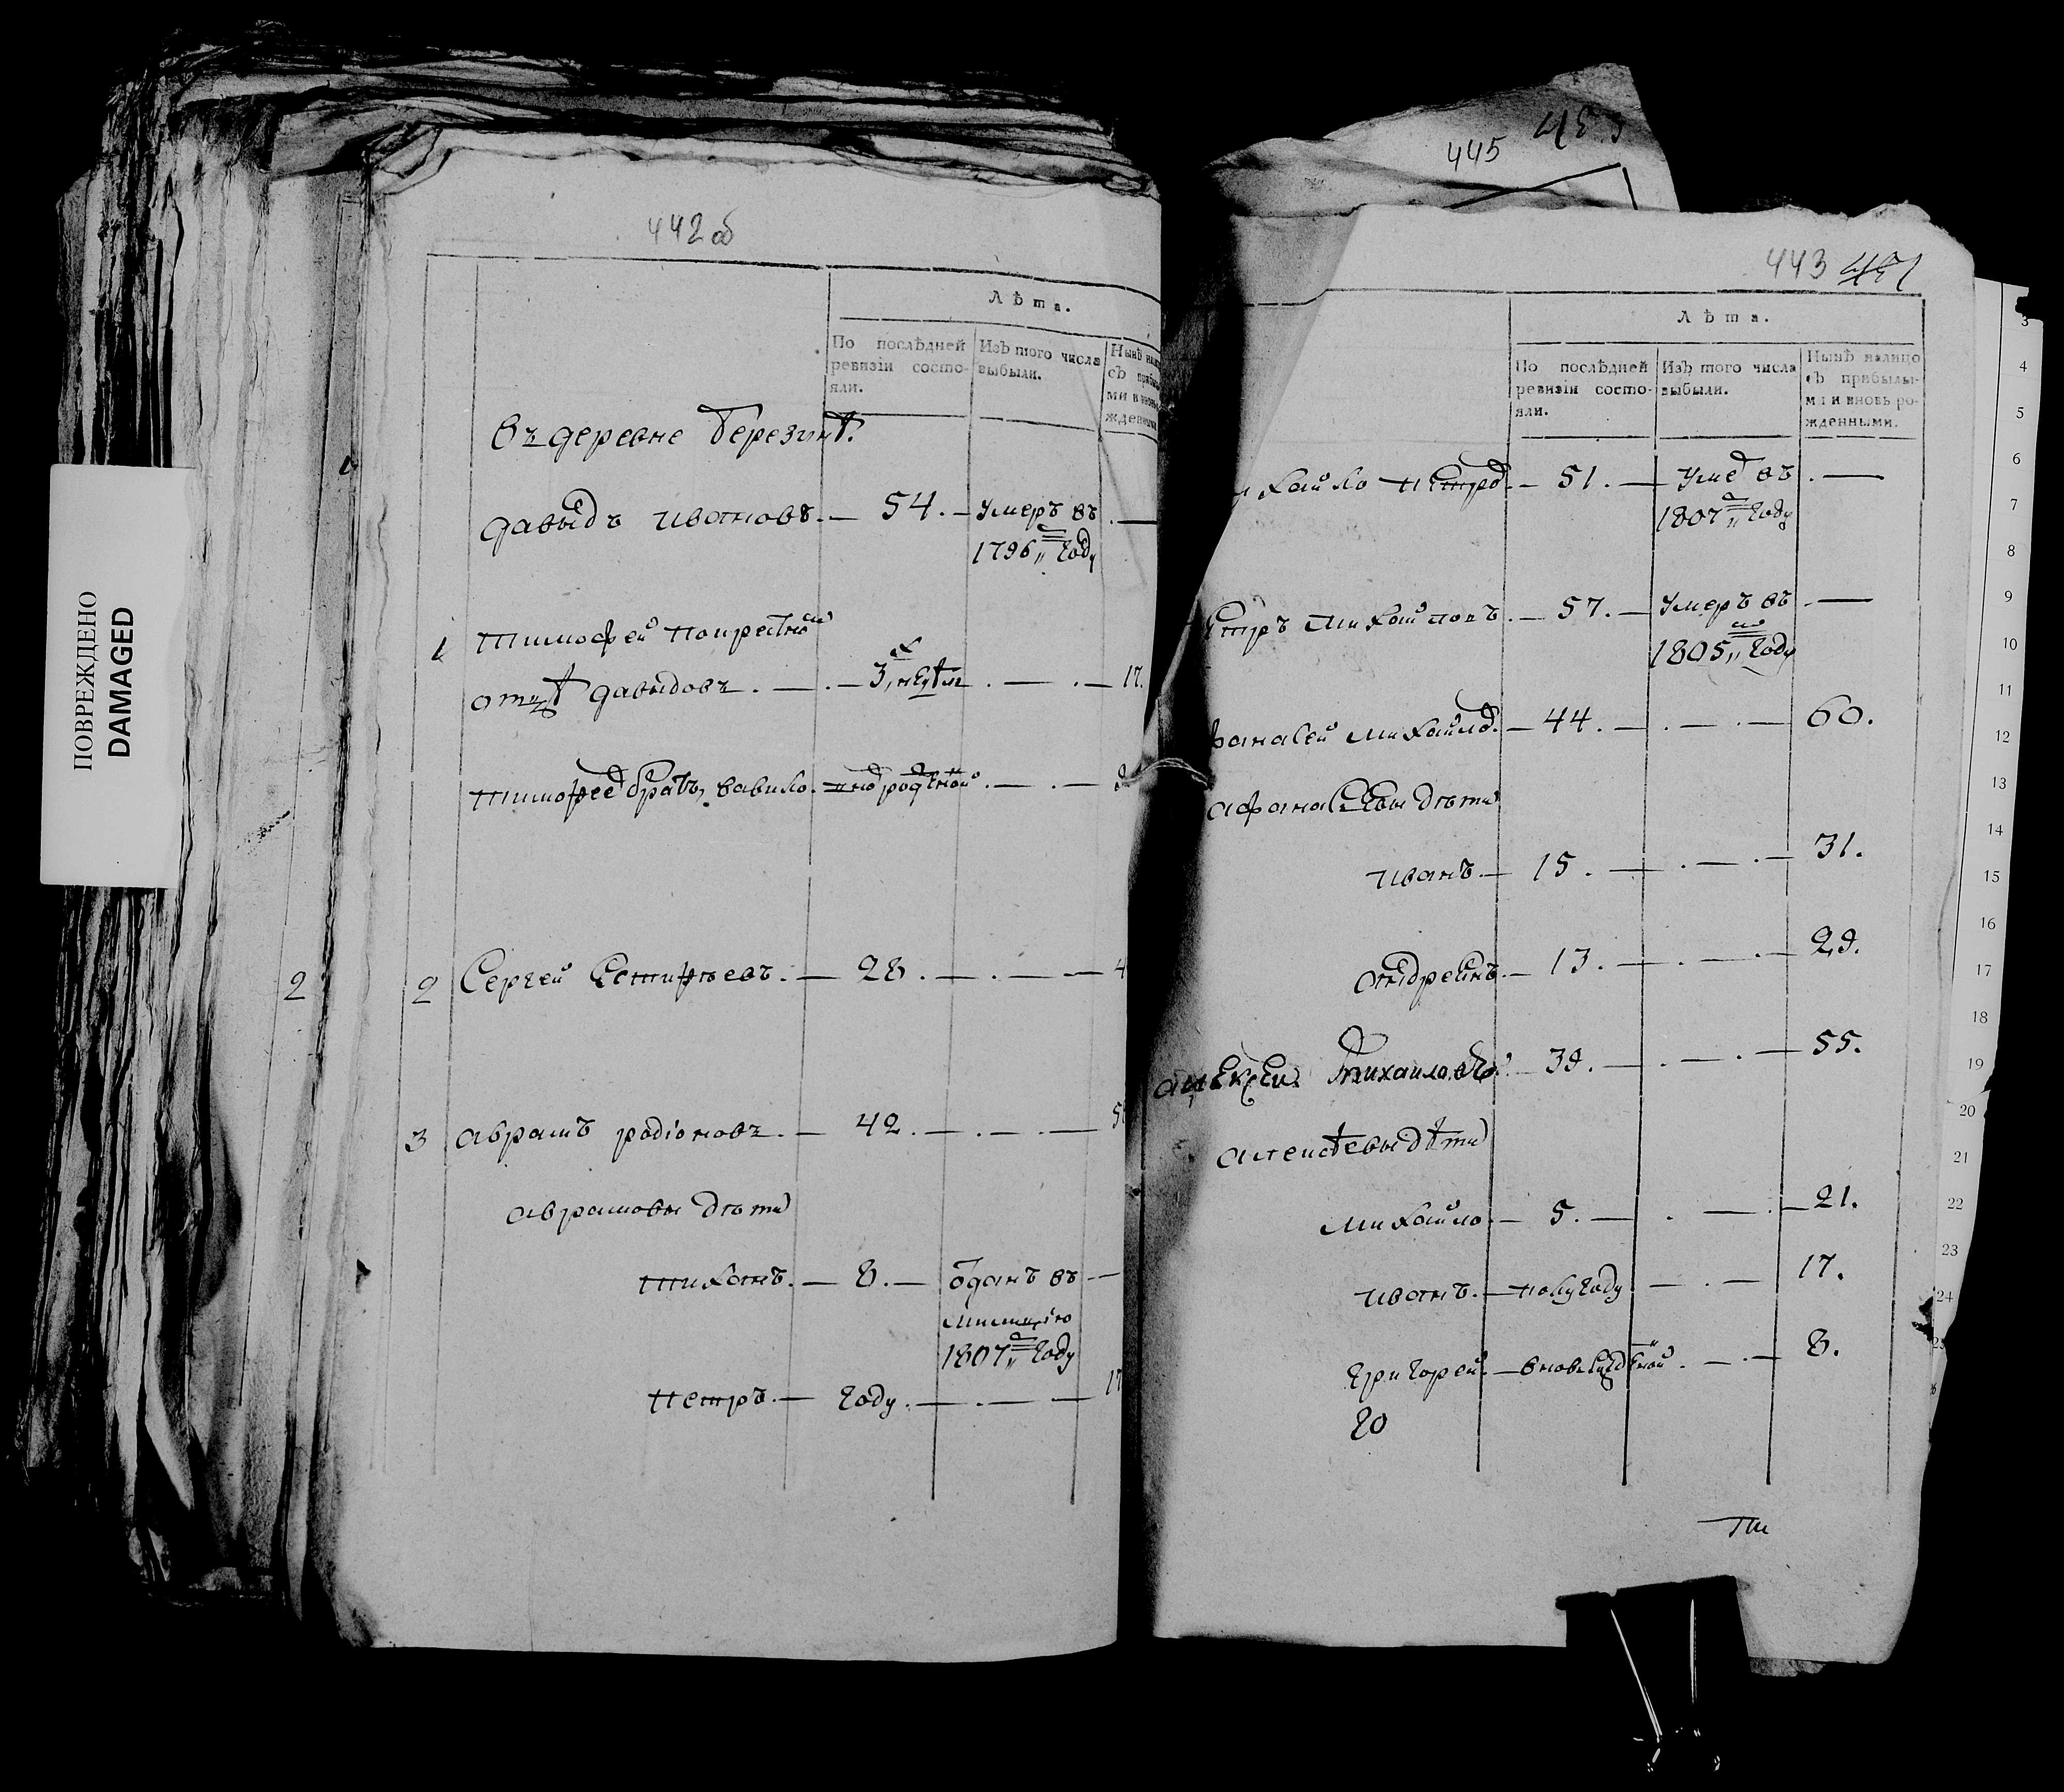 ПОВРЕЖДЕНО
DAMAGED
442 об
Лѣта.
По послѣдней ревизіи состо-
яли.
Изъ того числа
выбыли.
Нынѣ
съ
ми и вновь
жденными
въ деревне березинѣ.
давыдъ ивановъ. — 54. — умеръ въ —
1796 году
1 тимофей
отцѣ давыдовъ. — 3 недѣл — 17.
тимофѣе братъ вавило
2
2 Сергей — 28. —
3 аврамъ родіоновъ. — 42. —
аврамовы дѣти
тиханъ. — 8. — оданъ въ —
милицію
1807 году
петръ. — году. — 17
445
443 451
Лѣта.
По послѣдней
ревизіи состо-
яли.
Изъ того числа
выбыли.
Нынѣ налицо
съ прибылы-
ми и вновь ро-
жденными.
хайло петро — 51. — уме въ —
1807 году
етръ михайловъ. — 57. — умеръ въ —
1805 году
фанасей михайло — 44. — 60.
афанасьевы дѣти
иванъ — 15. — 31.
андреянъ. — 13. — 29.
алексей михаиловъ — 39. — 55.
алексѣевы дѣти
михайло — 5. — 21.
иванъ. — полугоду — 17.
григорей — вновь рожденной — 8.
го
3
4
5
6
7
8
9
10
11
12
13
14
15
16
17
18
19
20
21
22
23
24
25